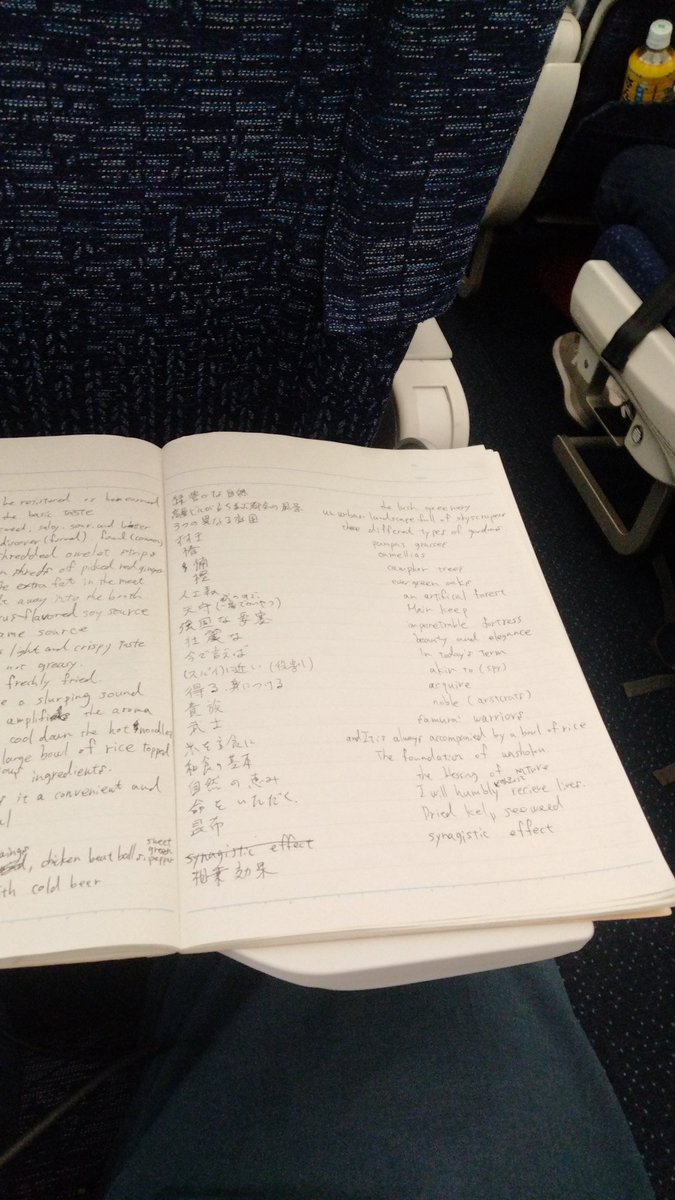 be registered or be
the basic taste
sweet, salty, sour, and bitter
discover (formal) find (common)
shredded omelet strips
shreds of picked red ginger
extra fat in the meet
away into the broth
-flavored soy source
source
light and crispy taste
not greasy.
freshly fried.
a slurping sound
amplifies the aroma
cool down the hot noodles
large bowl of rice topped
ingredients.
it a convenient and
sweet
green
chicken beat balls. pepper
with cold beer
な自然
3つの異なる庭園
椿
楠
樫
人工林
天守
強固な要塞
壮麗な
今で言えば
(スパイ)に近い (役割)
得る、身につける
貴族
武士
米を主食に
和食の基本
自然の恵み
命をいただく。
昆布
synagistic effect
相乗効果
the lush greenery
urban landscape full of skyscrapers
three different types of gardens
pampas grasses
camellias
camphor treep
evergreen oaks
an artificial forest
Main keep
impenetrable fortress
beauty and elegance
In today's term
akin to (spy)
acquire
noble (aristcrats)
samurai warriors
and It is always accompanied by a bowl of rice
The foundation of washoku
the blessing of nature
I will humbly recieve lives.
Dried kelp seaweed
synagistic effect